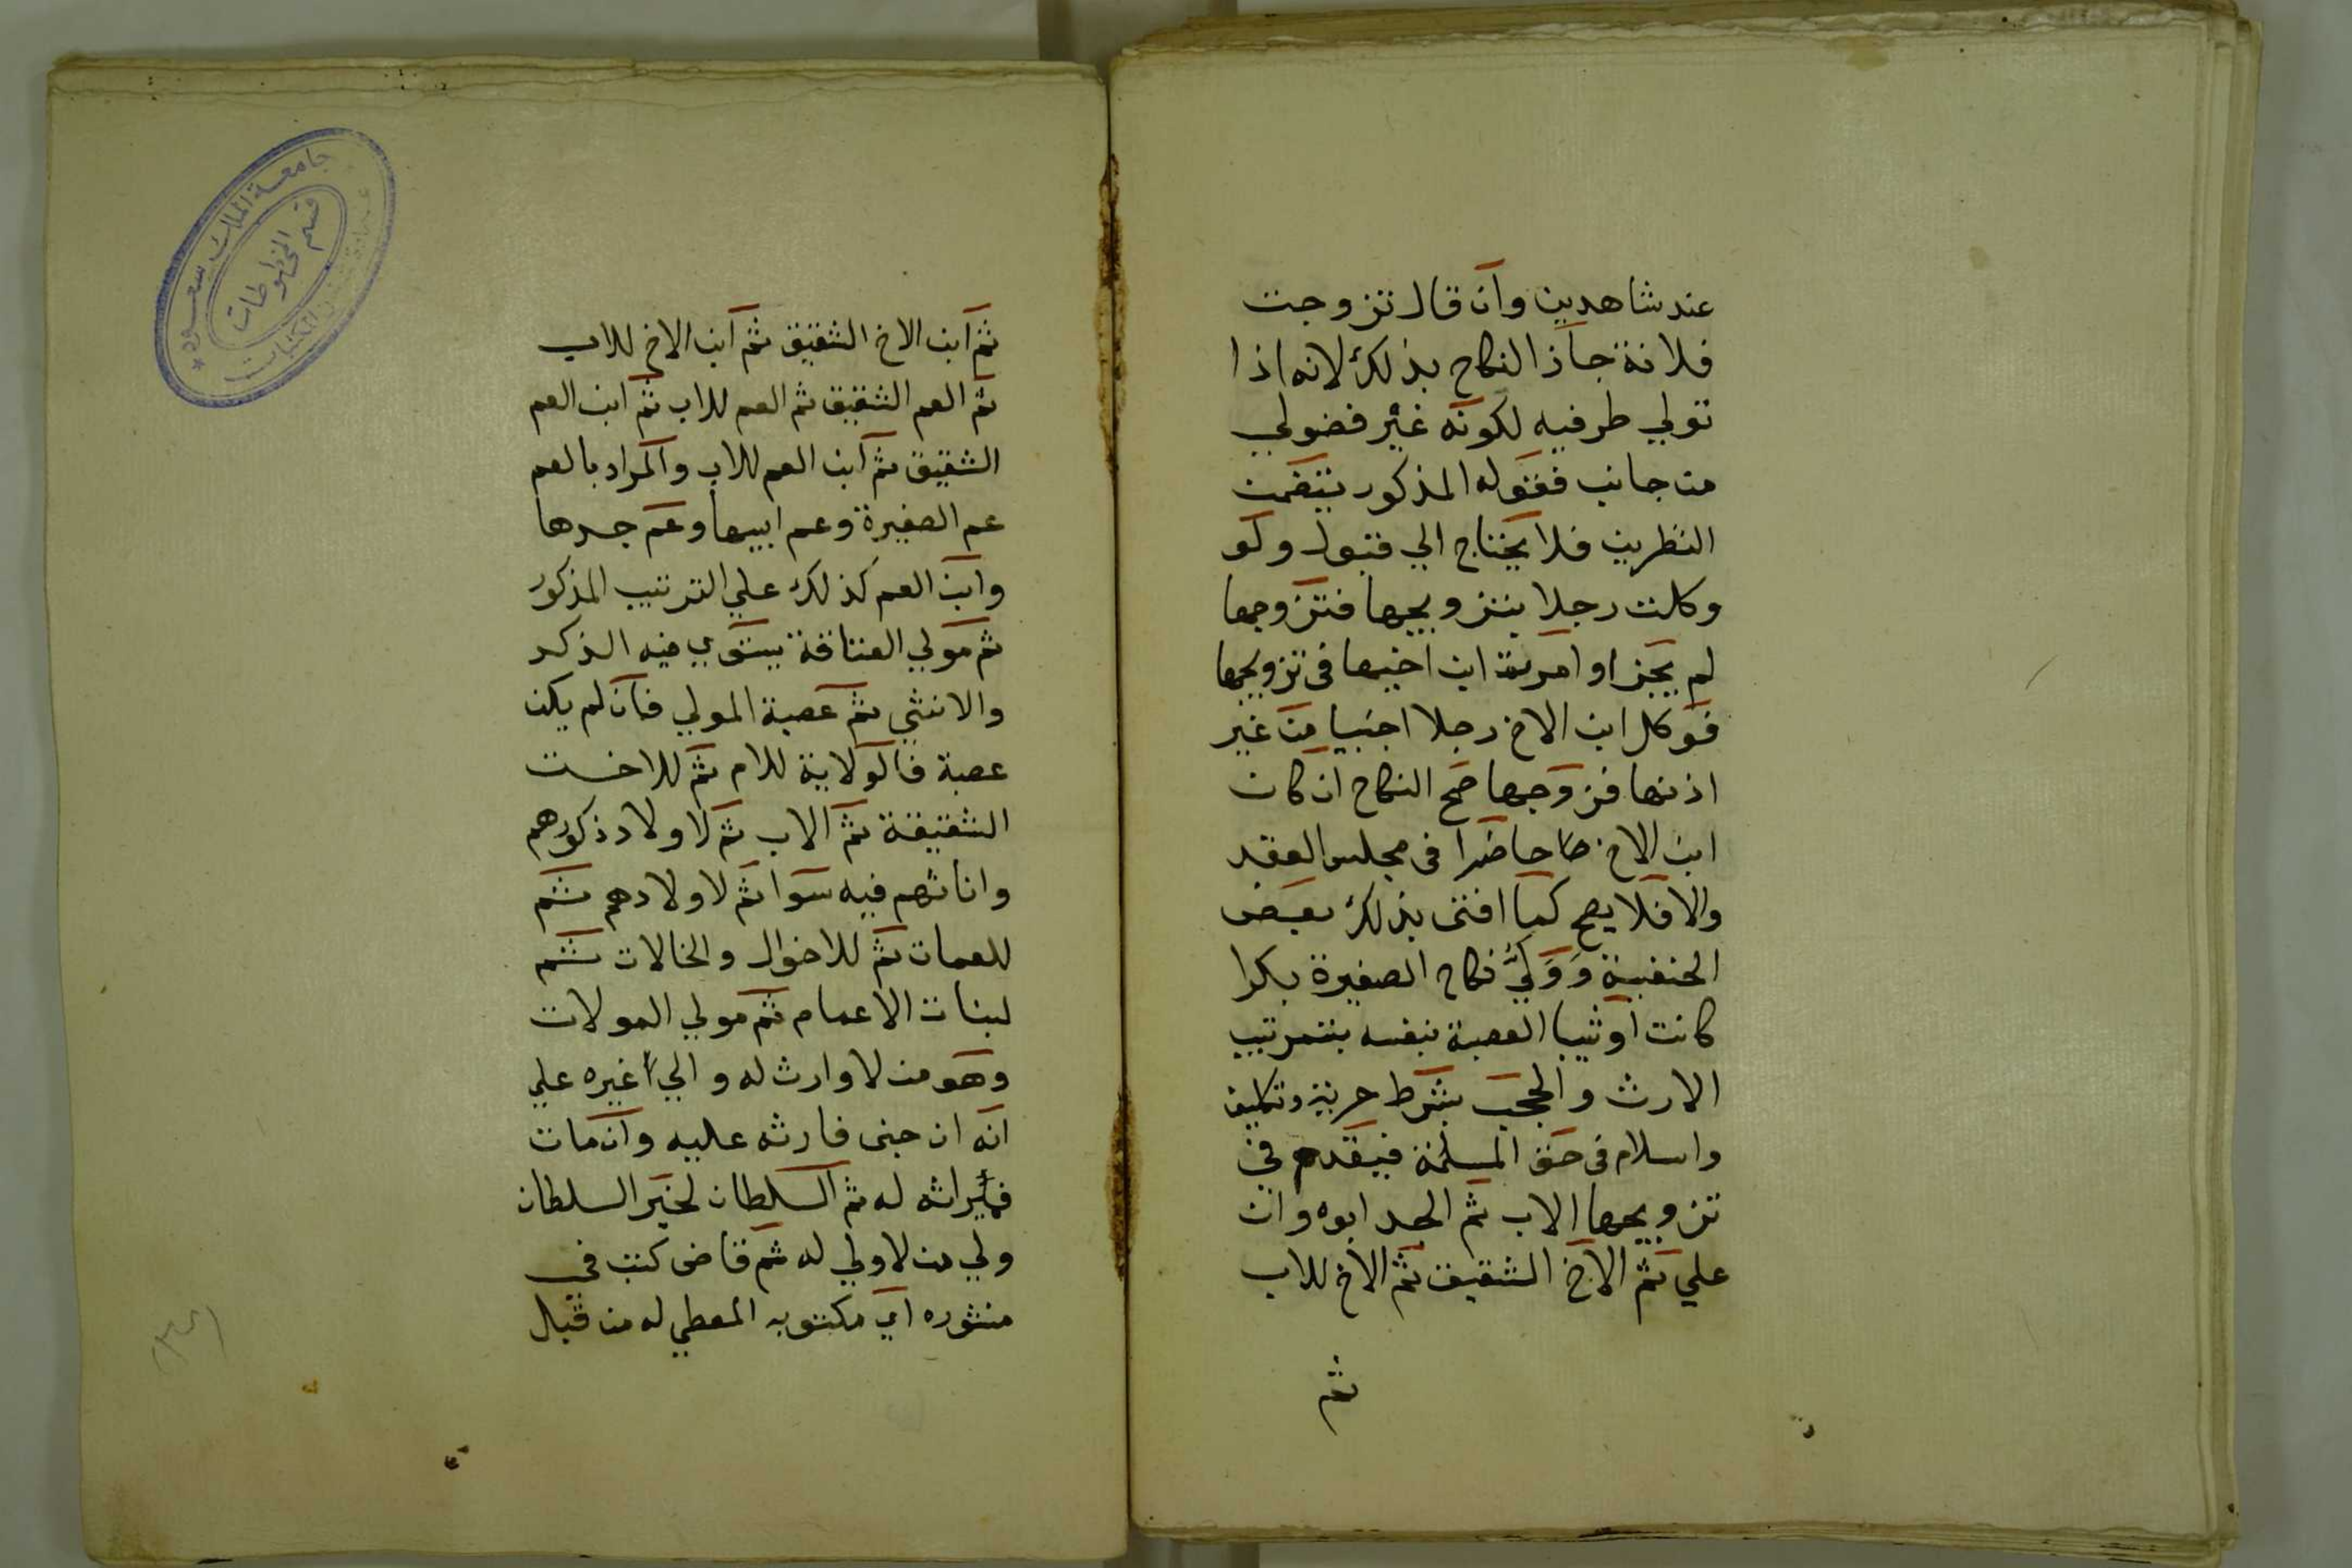 عند شاهدين وان قال تزوجت
فلانة جاز النكاح بذلك لانه اذا
تولي طرفيه لكونه غير فضولي
من جانب فقوله المذكور يتضمن
النظرين فلا يحتاج الي قبول ولو
وكلت رجلا بتزويجها فتزوجها
لم يجز او امرت ابن اخيها في تزويجها
فوكل ابن الاخ رجلا اجنبيا من غير
اذنها فزوجها صح النكاح ان كان
ابن الاخ حاضرا في مجلس العقد
والا فلا يصح كما افتى بذلك بعض
الحنفية وَوَليُّ نكاح الصغيرة بكرا
كانت او ثيبا العصبة بنفسه بترتيب
الارث والحجب بشرط حرية وتكليف
واسلام في حق المسلمة فيقدم في
تزويجها الاب ثم الجد ابوه وان
علي ثم الاخ الشقيق ثم الاخ للاب
ثم
ثم ابن الاخ الشقيق ثم ابن الاخ للاب
ثم العم الشقيق ثم العم للاب ثم ابن العم
الشقيق ثم ابن العم للاب والمراد بالعم
عم الصغيرة وعم ابيها وعم جدها
وابن العم كذلك علي الترتيب المذكور
ثم مولي العتاقة يستوي فيه الذكر
والانثي ثم عصبة المولي فان لم يكن
عصبة فالولاية للام ثم للاخت
الشقيقة ثم الاب ثم لاولاد ذكورهم
واناثهم فيه سوا ثم لاولادهم ثم
للعمات ثم للاخوال والخالات ثم
لبنات الاعمام ثم مولي الموالات
وهو من لا وارث له والي غيره علي
انه ان جنى فارثه عليه وان مات
فميراثه له ثم السلطان لخبر السلطان
ولي من لا ولي له ثم قاض كتب في
منشوره اي مكتوبه المعطي له من قبل
جامعة الملك سعود
قسم المخطوطات
المكتبات